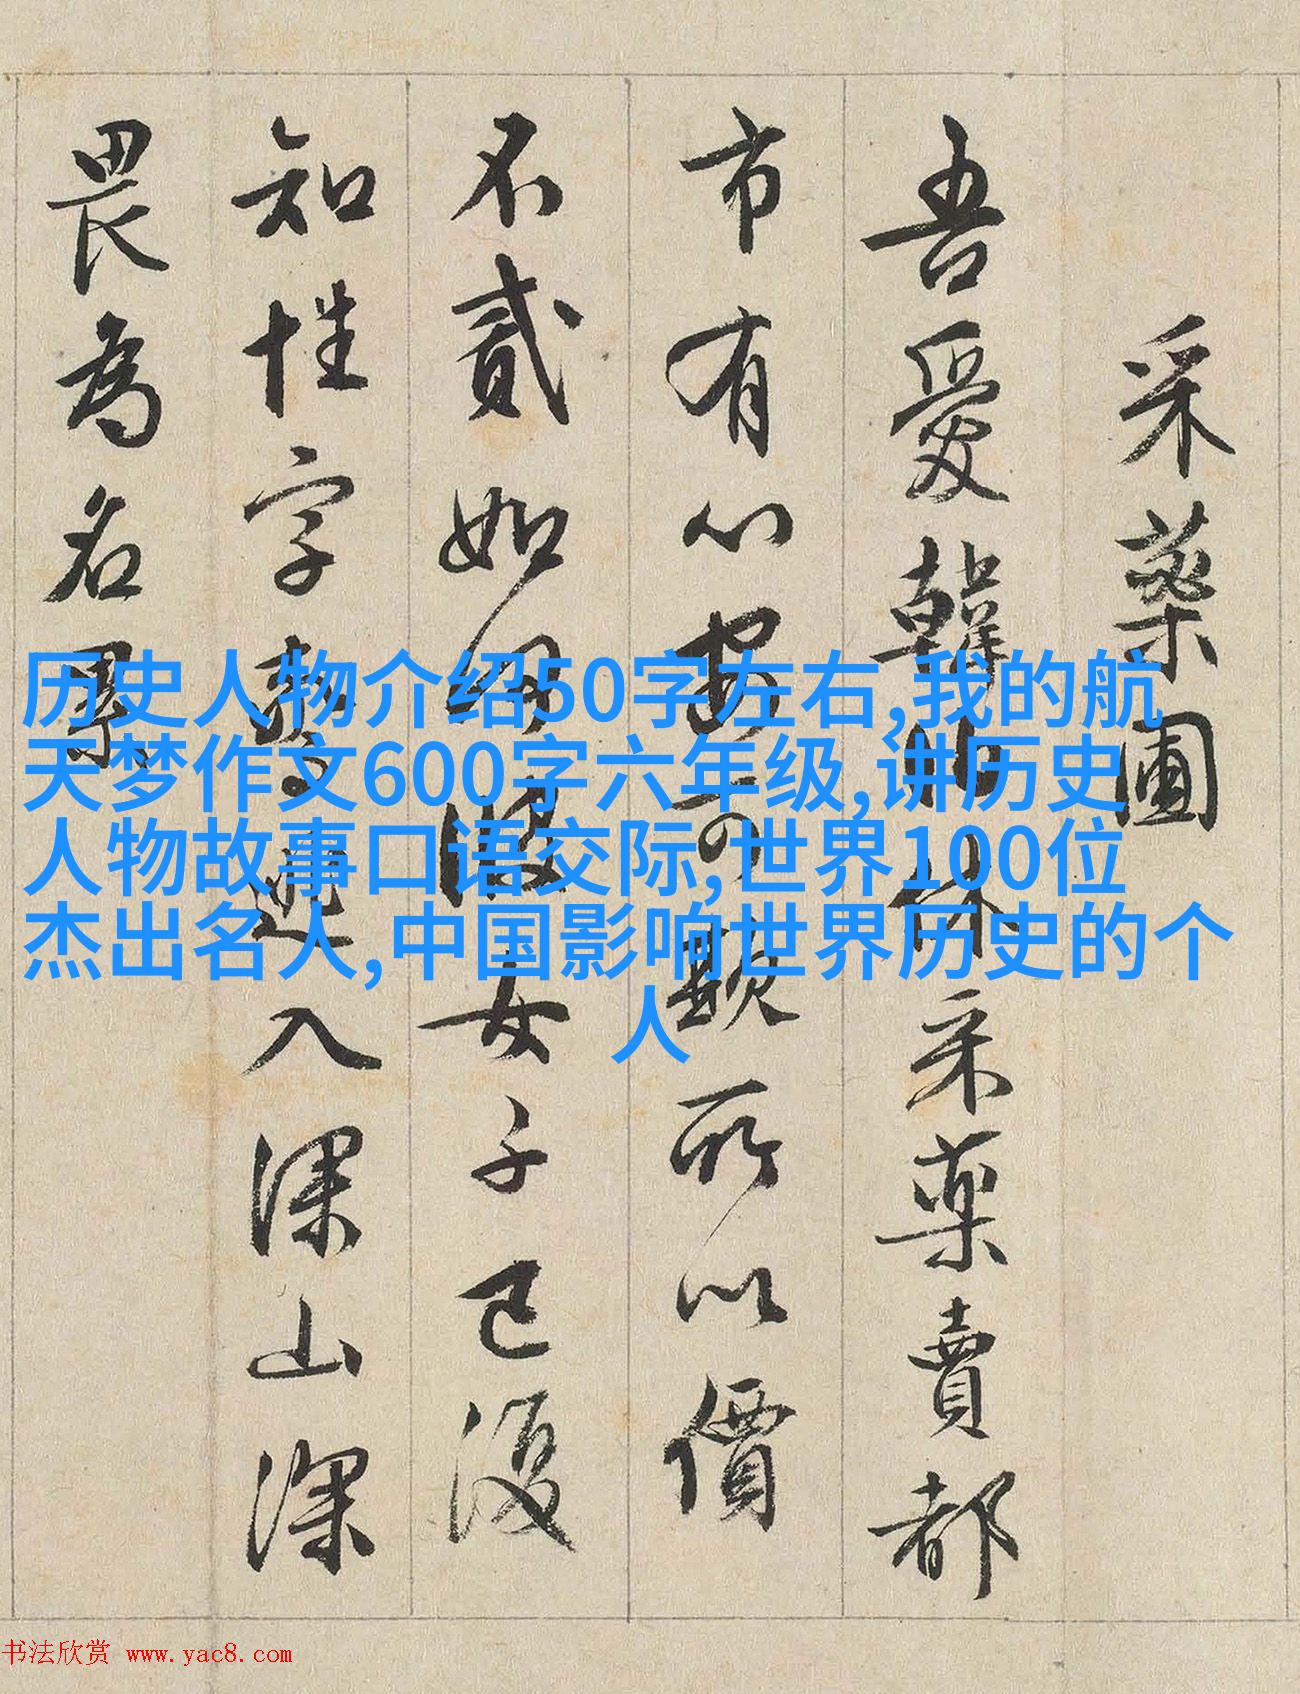 采藥圃
吾愛韓伯休采藥賣都
市有心安可覿所以價
不貳如何彼女子已復
知姓字驚逃入深山深
畏為名累
历史人物介绍50字左右,我的航
天梦作文600字六年级,讲历史
人物故事口语交际,世界100位
杰出名人,中国影响世界历史的个
人
书法欣赏 www.yac8.com